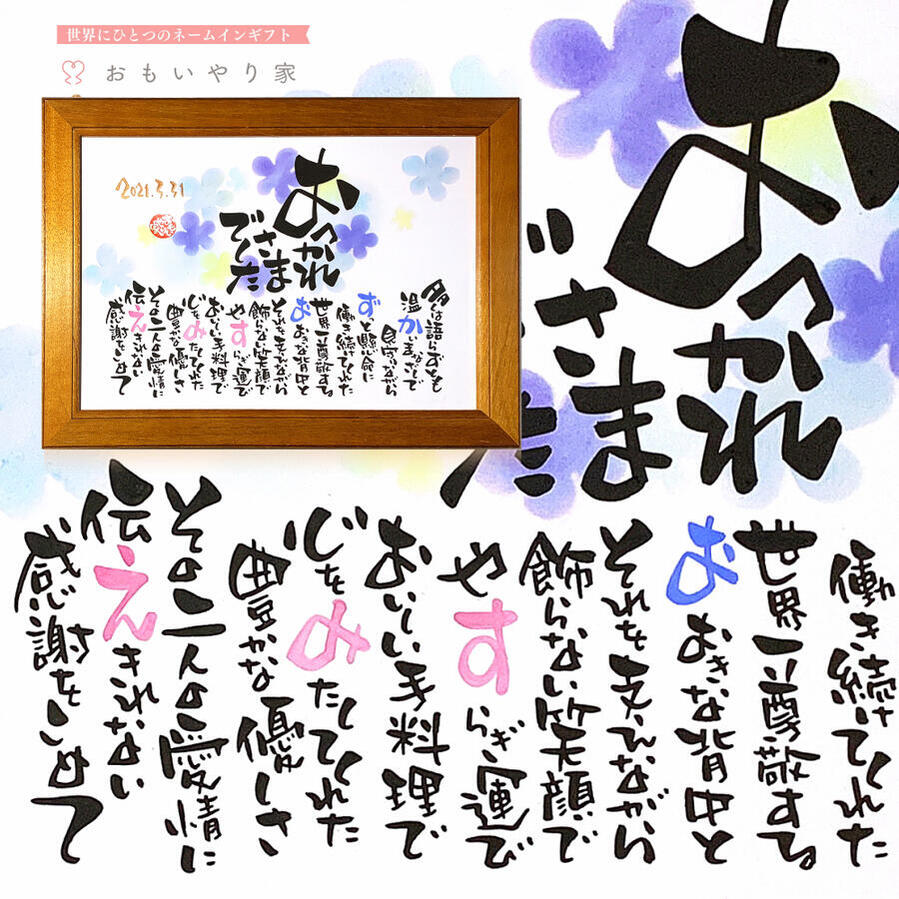 世界にひとつのネームインギフト
おもいやり家
2021.3.31
おつかれ
さまでした
多くは語らずとも
温かいまなざしで
見守りながら
ずっと懸命に
働き続けてくれた
世界一尊敬する
おおきな背中と
それを支えながら
飾らない笑顔で
やすらぎ運び
おいしい手料理で
心をみたしてくれた
豊かな優しさ
その二人の愛情に
伝えきれない
感謝をこめて
おつかれ
さま
た
働き続けてくれた
世界一尊敬する
おおきな背中と
それを支えながら
飾らない笑顔で
やすらぎ運び
おいしい手料理で
心をみたしてくれた
豊かな優しさ
その二人の愛情に
伝えきれない
感謝をこめて